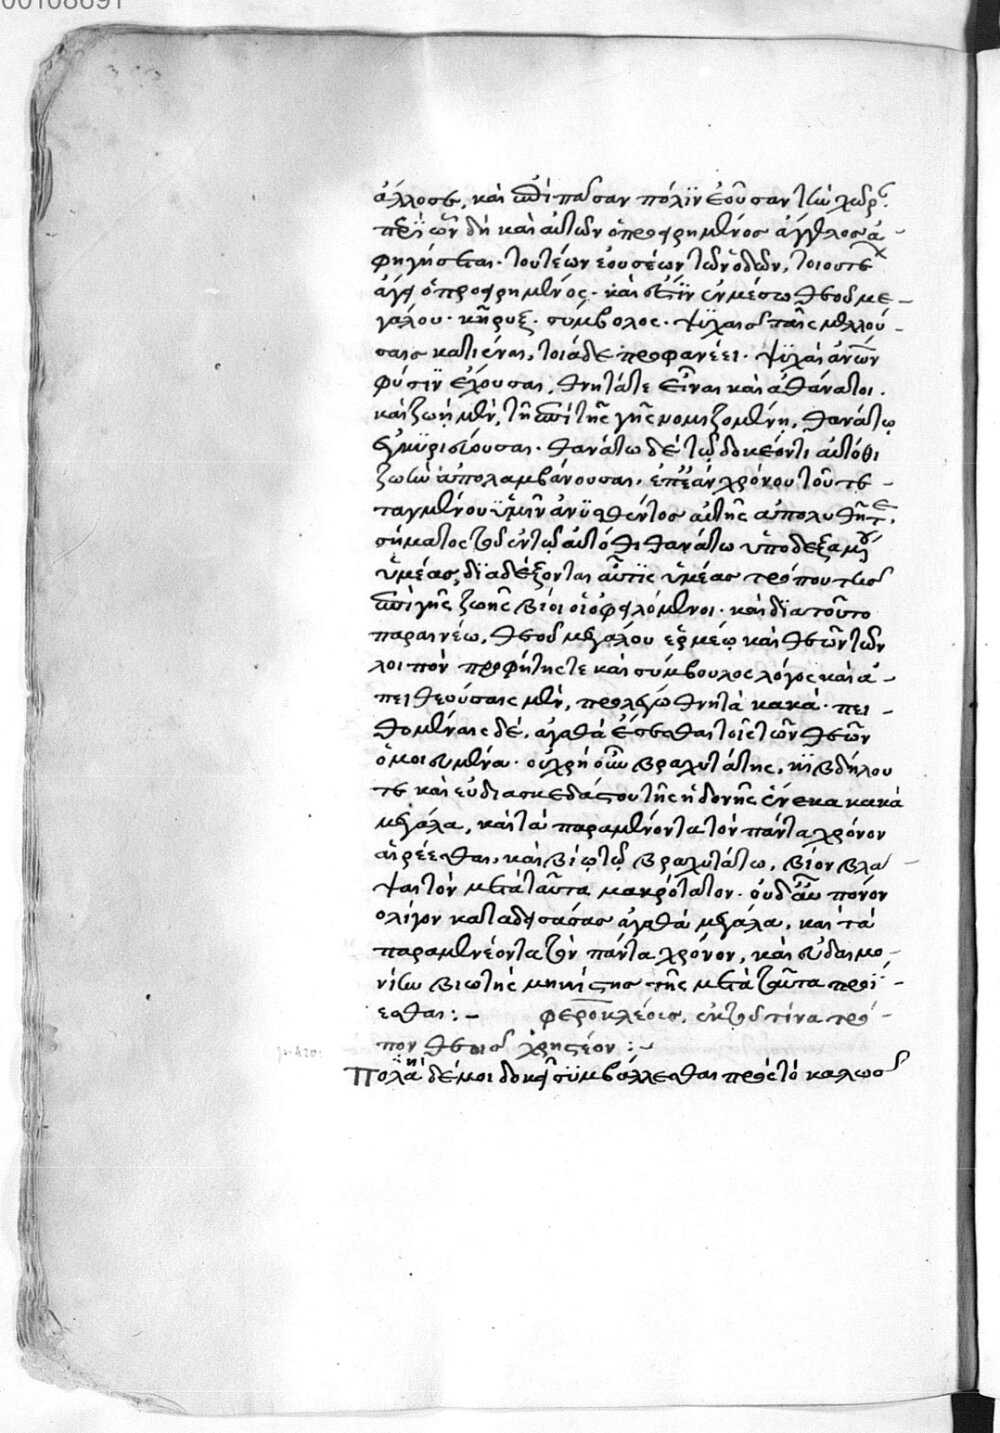 00108691
ἄλλοσε, καὶ ἐπὶ πᾶσαν πόλιν ἐοῦσαν τὴν χώρ
περὶ ὧν δὴ καὶ αὐτῶν ὁ προειρημένος ἄγγελος ἀ-
φηγήσεται. τουτέων ἐουσέων τῶν ὁδῶν, τοιοῦτος
ὁ προειρημένος. καὶ στὰς ἐν μέσω θεοῦ με-
γάλου κῆρυξ. σύμβολος. ψυχαῖς ταῖς μελλού-
σαις κατιέναι, τοιάδε προφανέει. ψυχαὶ ἀνῶν
φύσιν ἔχουσαι, θνηταί τε εἶναι καὶ ἀθάνατοι.
καὶ ζωῇ μὲν, τῇ ἐπὶ τῆς γῆς νομιζομένῃ, θανάτῳ
ἐγκυρήσουσαι. θανάτω δὲ τῷ δοκέοντι αὐτόθι
ζωὴν ἀπολαμβάνουσαι, ἐπεὰν χρόνου τοῦ τε-
ταγμένου ὑμῖν ἀνυσθέντος αὐτῆς ἀπολυθῆτε,
σήματος τοῦ ἐν τῷ αὐτόθι θανάτω ὑποδεξαμένου
ὑμέας, διαδέξονται αὖτις ὑμέας τρόπου τεῦ
ἐπὶ γῆς ζωῆς βίοι οἱ ὀφειλόμενοι. καὶ διὰ τοῦτο
παραινέω, θεοῦ μεγάλου ἑρμέῳ καὶ θεῶν τῶν
λοιπὸν προφήτης τε καὶ σύμβουλος λόγος καὶ ἀ-
πειθεούσαις μὲν, προλέγω θνητὰ κακά. πει-
θομέναις δὲ, ἀγαθὰ ἔσεσθαι τοῖς τῶν θεῶν
ὁμοιούμενα. οὐ χρὴ οὖν βραχυτάτης, κιβδήλου
τε καὶ εὐδιασκεδάστου τῆς ἡδονῆς ἕνεκα κακὰ
μεγάλα, καὶ τὰ παραμένοντα τὸν πάντα χρόνον
αἱρέεσθαι, καὶ βίῳ τῷ βραχυτάτω, βίον βλά-
ψαι τὸν μετὰ ταῦτα μακρότατον. οὐδ' ἂν πόνον
ὀλίγον καταδείσασας ἀγαθὰ μεγάλα, καὶ τὰ
παραμενέοντα τὸν πάντα χρόνον, καὶ εὐδαιμο-
νίην βιοτῆς μηκίστης τῆς μετὰ ταῦτα προί-
εσθαι:- φεροκλέοις, ἐκ τοῦ τίνα τρό-
πον θεοῖς χρηστέον:-
Πολλὰ δέ μοι δοκεῖ συμβάλλεσθαι πρὸς τὸ καλῶς